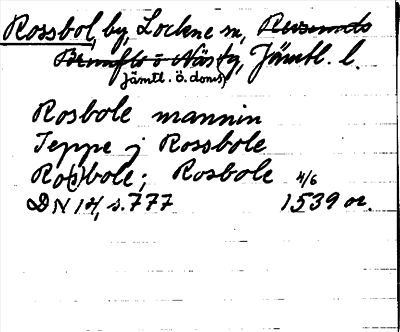 Rossbol, by, Lockne sn, Revsunds
Brunflo o Näs tg, Jämtl. l.
Jämtl. ö. doms.
Rosbole mannin
Jeppe j Rossbole
Ro(s)bole; Rosbole 4/6
DN 14, s. 777 1539 or.